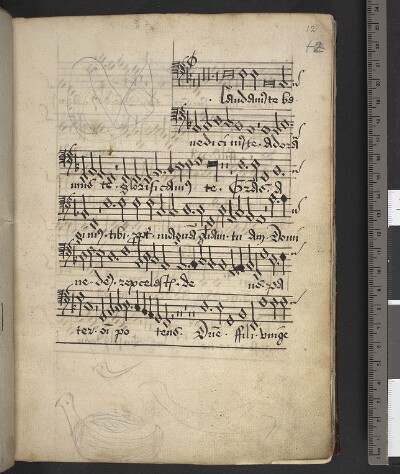 12
Laudam⁹ te be
nedicim⁹ te. adora
mus te. glorificam⁹ te. Gras. a
gim⁹. tibi. ppt. magnā. gliam. tu am Domi
ne. de⁹. rex celest. de us. pa
ter. oi po tens. Dne. fili. unige